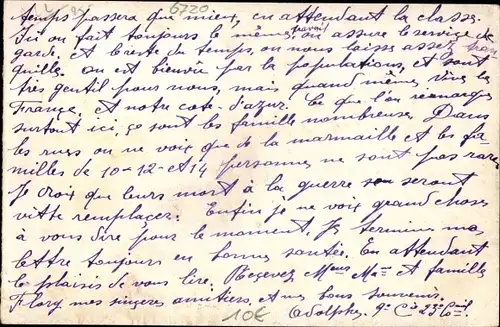 6720
temps passera que mieux, en attendant la classe.
Ici on fait toujours le même travail, on assure le service de
garde. Et le reste du temps, on nous laisse assez tran
quille. on est bienvu par la populations, et sont
très gentil pour nous, mais quand même vive la
France, et notre cote-d'azur. Ce que l'on remarque
surtout ici, ce sont les famille nombreuses. Dans
les rues on ne voie que de la marmaille et les fa-
milles de 10-12-et 14 personnes ne sont pas rare
Je crois que leurs mort à la guerre seront
vitte remplaçer. Enfin je ne vois grand choses
à vous dire pour le moment, Je termine ma
lettre toujours en bonne santée. En attendant
le plaisir de vous lire. Recevez Mr Me et famille
Flory mes sinçeres amitiers, et mes bons souvenirs.
Adolphe. 9e Cie 23e
10€